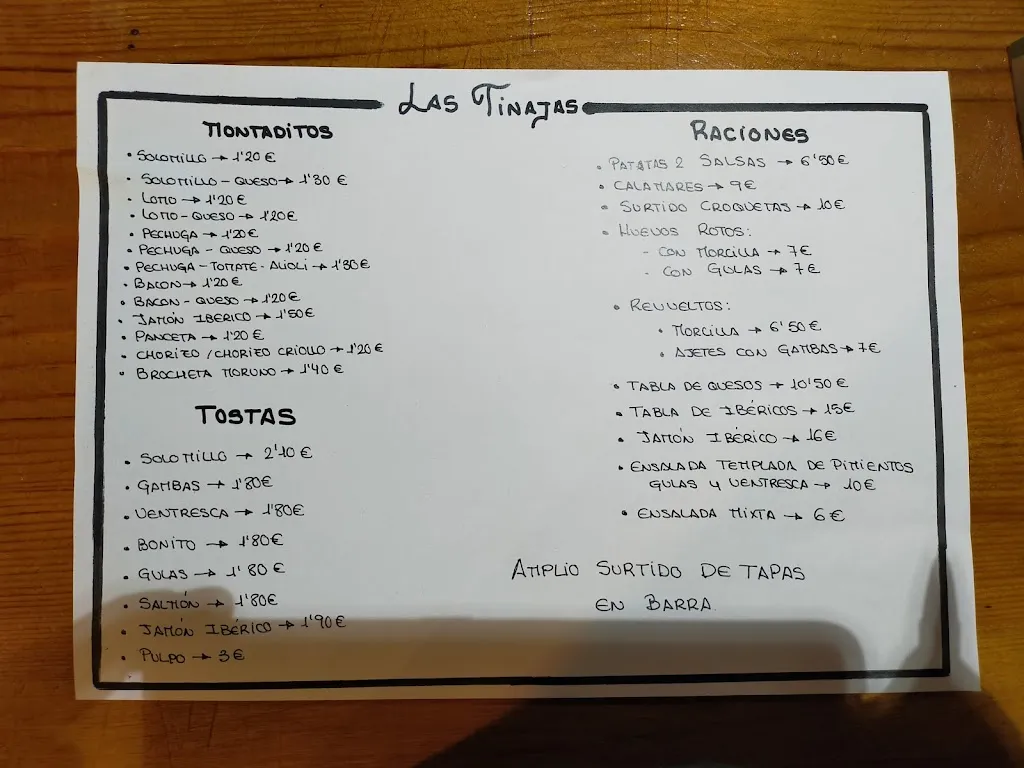 Las Tinajas
MONTADITOS
• SOLOMILLO → 1'20 €
• SOLOMILLO - QUESO → 1'30 €
• LOMO → 1'20 €
• LOMO - QUESO → 1'20 €
• PECHUGA → 1'20 €
• PECHUGA - QUESO → 1'20 €
• PECHUGA - TOMATE - ALIOLI → 1'30 €
• BACON → 1'20 €
• BACON - QUESO → 1'20 €
• JAMÓN IBERICO → 1'50 €
• PANCETA → 1'20 €
• CHORIZO / CHORIZO CRIOLLO → 1'20 €
• BROCHETA MORUNO → 1'40 €
TOSTAS
• SOLOMILLO → 2'10 €
• GAMBAS → 1'80 €
• VENTRESCA → 1'80 €
• BONITO → 1'80 €
• GULAS → 1'80 €
• SALMÓN → 1'80 €
• JAMÓN IBÉRICO → 1'90 €
• PULPO → 3 €
RACIONES
• PATATAS 2 SALSAS → 6'50 €
• CALAMARES → 9 €
• SURTIDO CROQUETAS → 10 €
• HUEVOS ROTOS:
- CON MORCILLA → 7 €
- CON GULAS → 7 €
• REVUELTOS:
• MORCILLA → 6'50 €
• AJETES CON GAMBAS → 7 €
• TABLA DE QUESOS → 10'50 €
• TABLA DE IBÉRICOS → 15 €
• JAMÓN IBÉRICO → 16 €
• ENSALADA TEMPLADA DE PIMIENTOS
GULAS Y VENTRESCA → 10 €
• ENSALADA MIXTA → 6 €
AMPLIO SURTIDO DE TAPAS
EN BARRA.